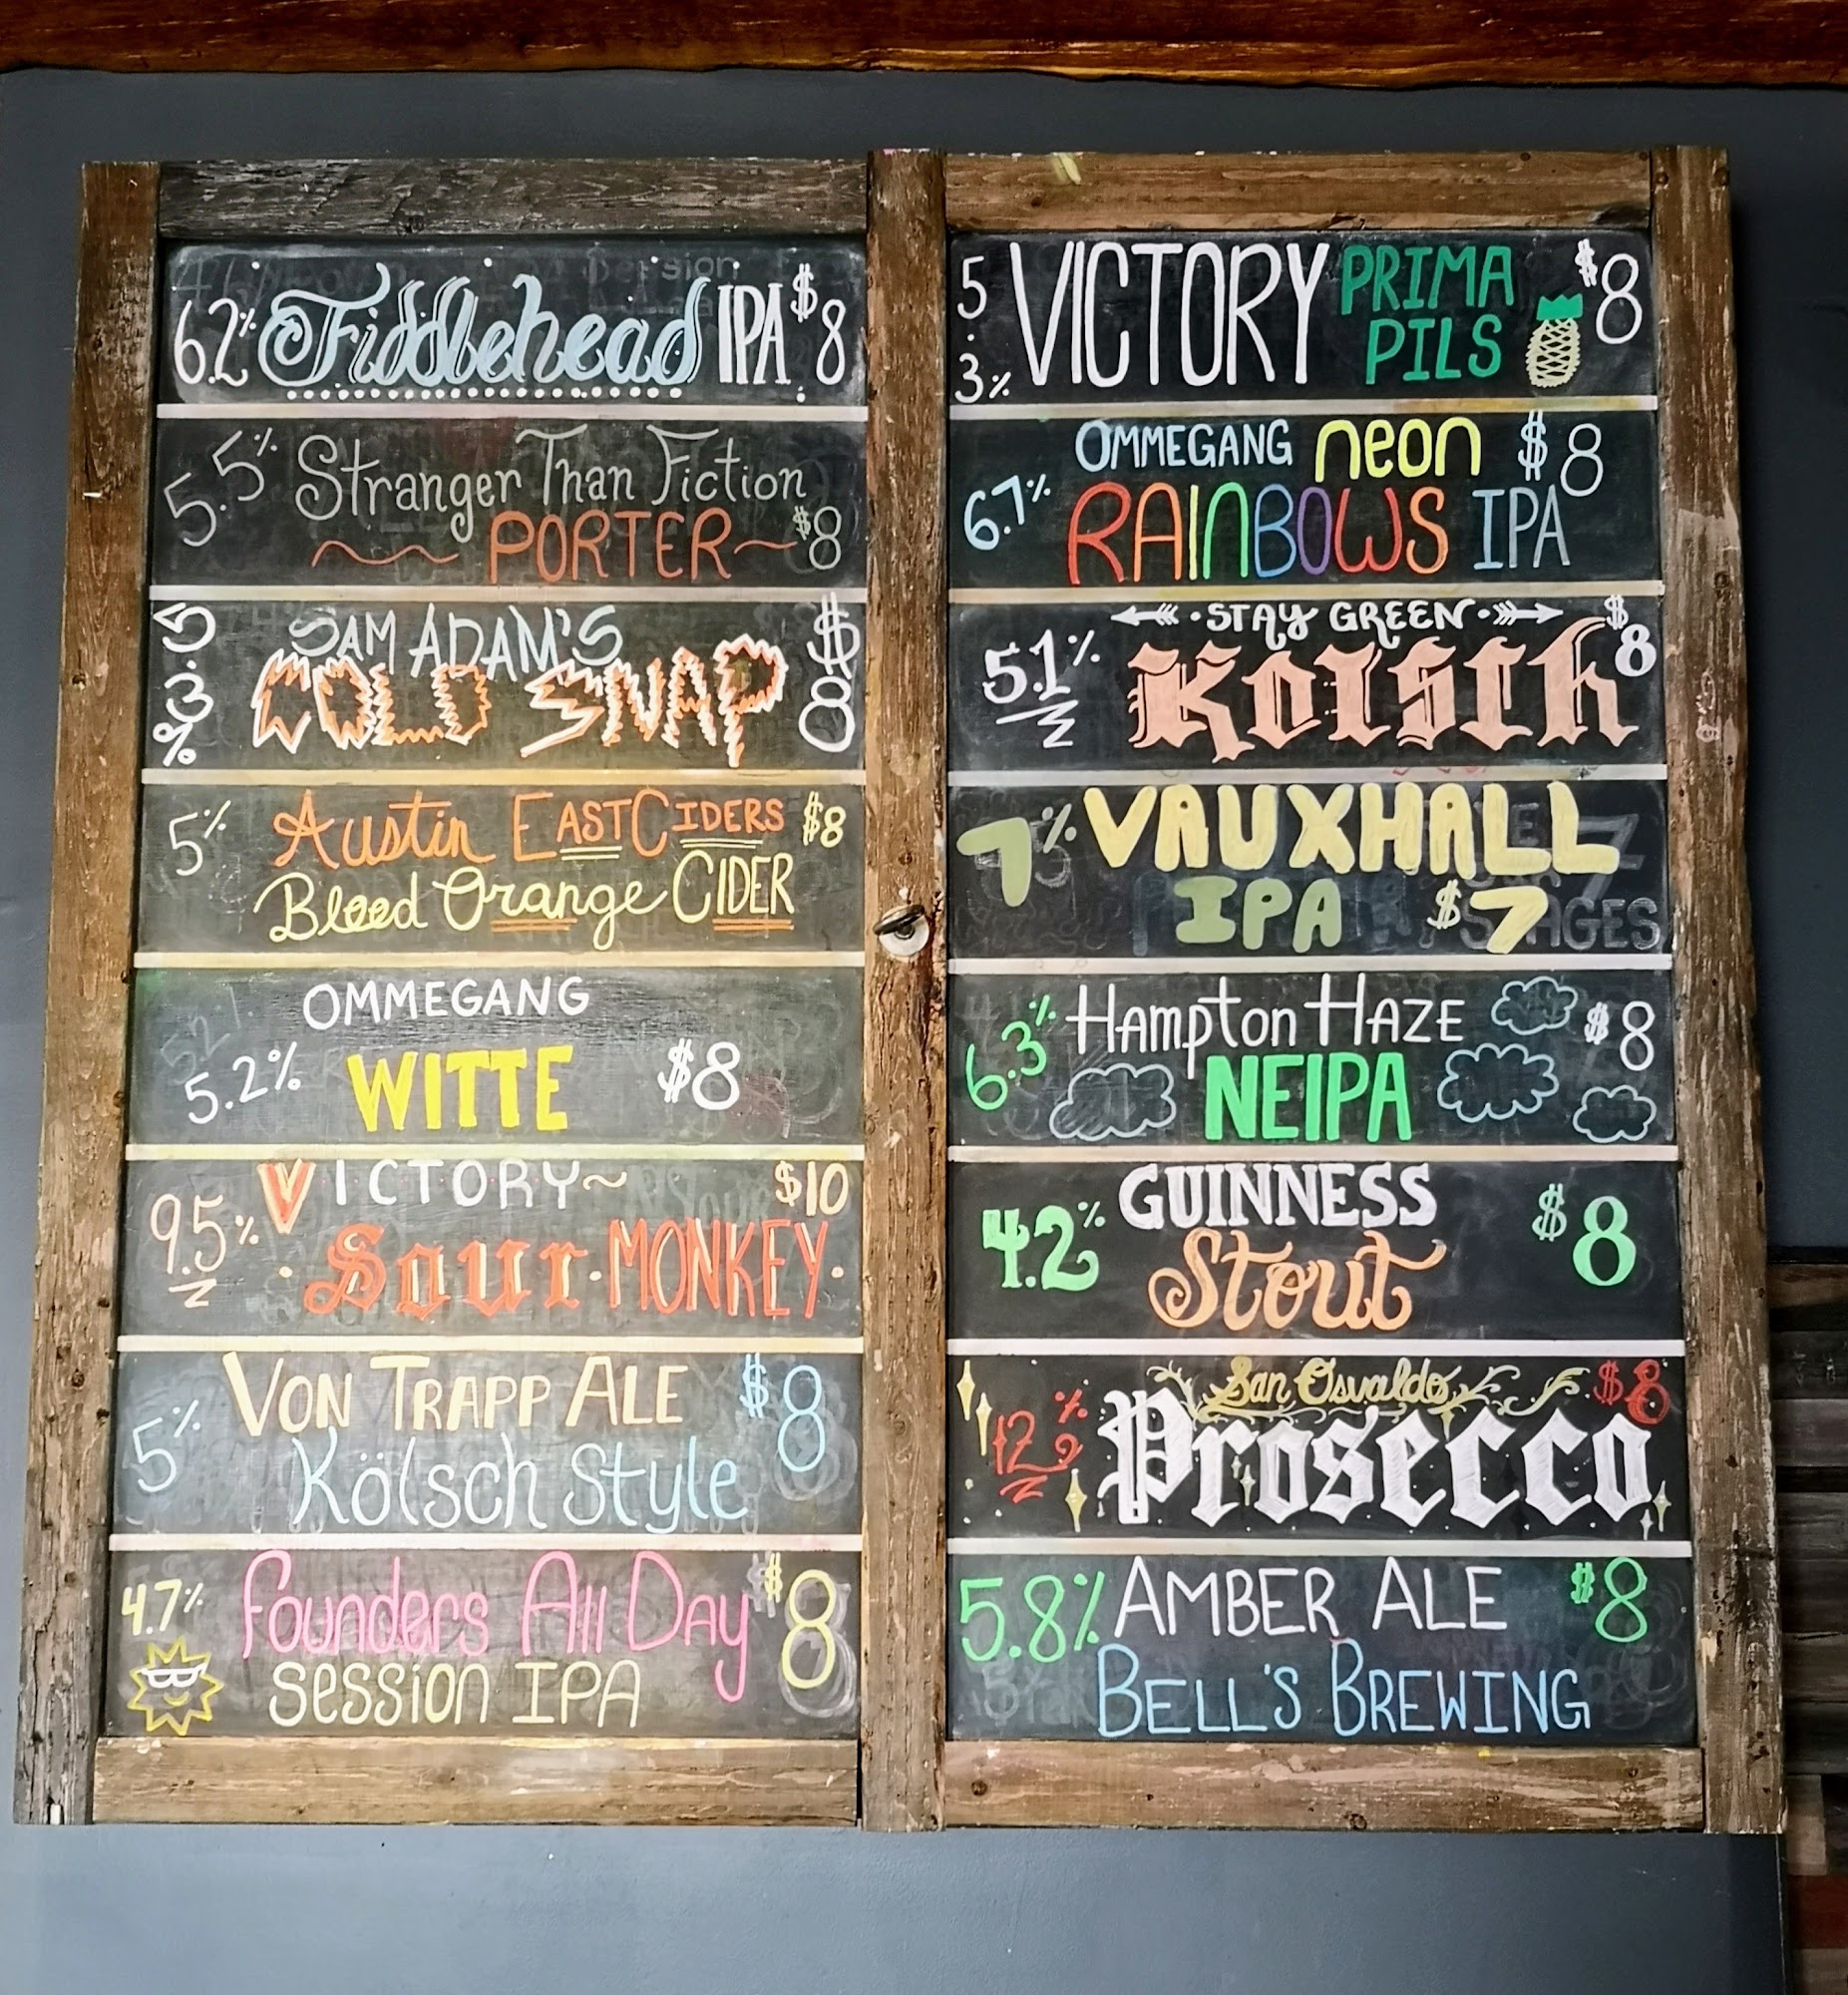 6.2% Fiddlehead IPA $8
5.5% Stranger Than Fiction
PORTER $8
5.3% SAM ADAM'S $8
COLD SNAP
5% Austin EASTCIDERS $8
Blood Orange CIDER
OMMEGANG
5.2% WITTE $8
VICTORY $10
9.5% Sour MONKEY
VON TRAPP ALE $8
5% Kölsch Style
4.7% Founders All Day $8
session IPA
5.3% VICTORY PRIMA PILS $8
OMMEGANG neon $8
6.7% RAINBOWS IPA
STAY GREEN $8
5.1% Kolsch
7% VAUXHALL
IPA $7
6.3% Hampton HAZE $8
NEIPA
4.2% GUINNESS $8
Stout
San Osvaldo $8
12% Prosecco
5.8% AMBER ALE $8
BELL'S BREWING